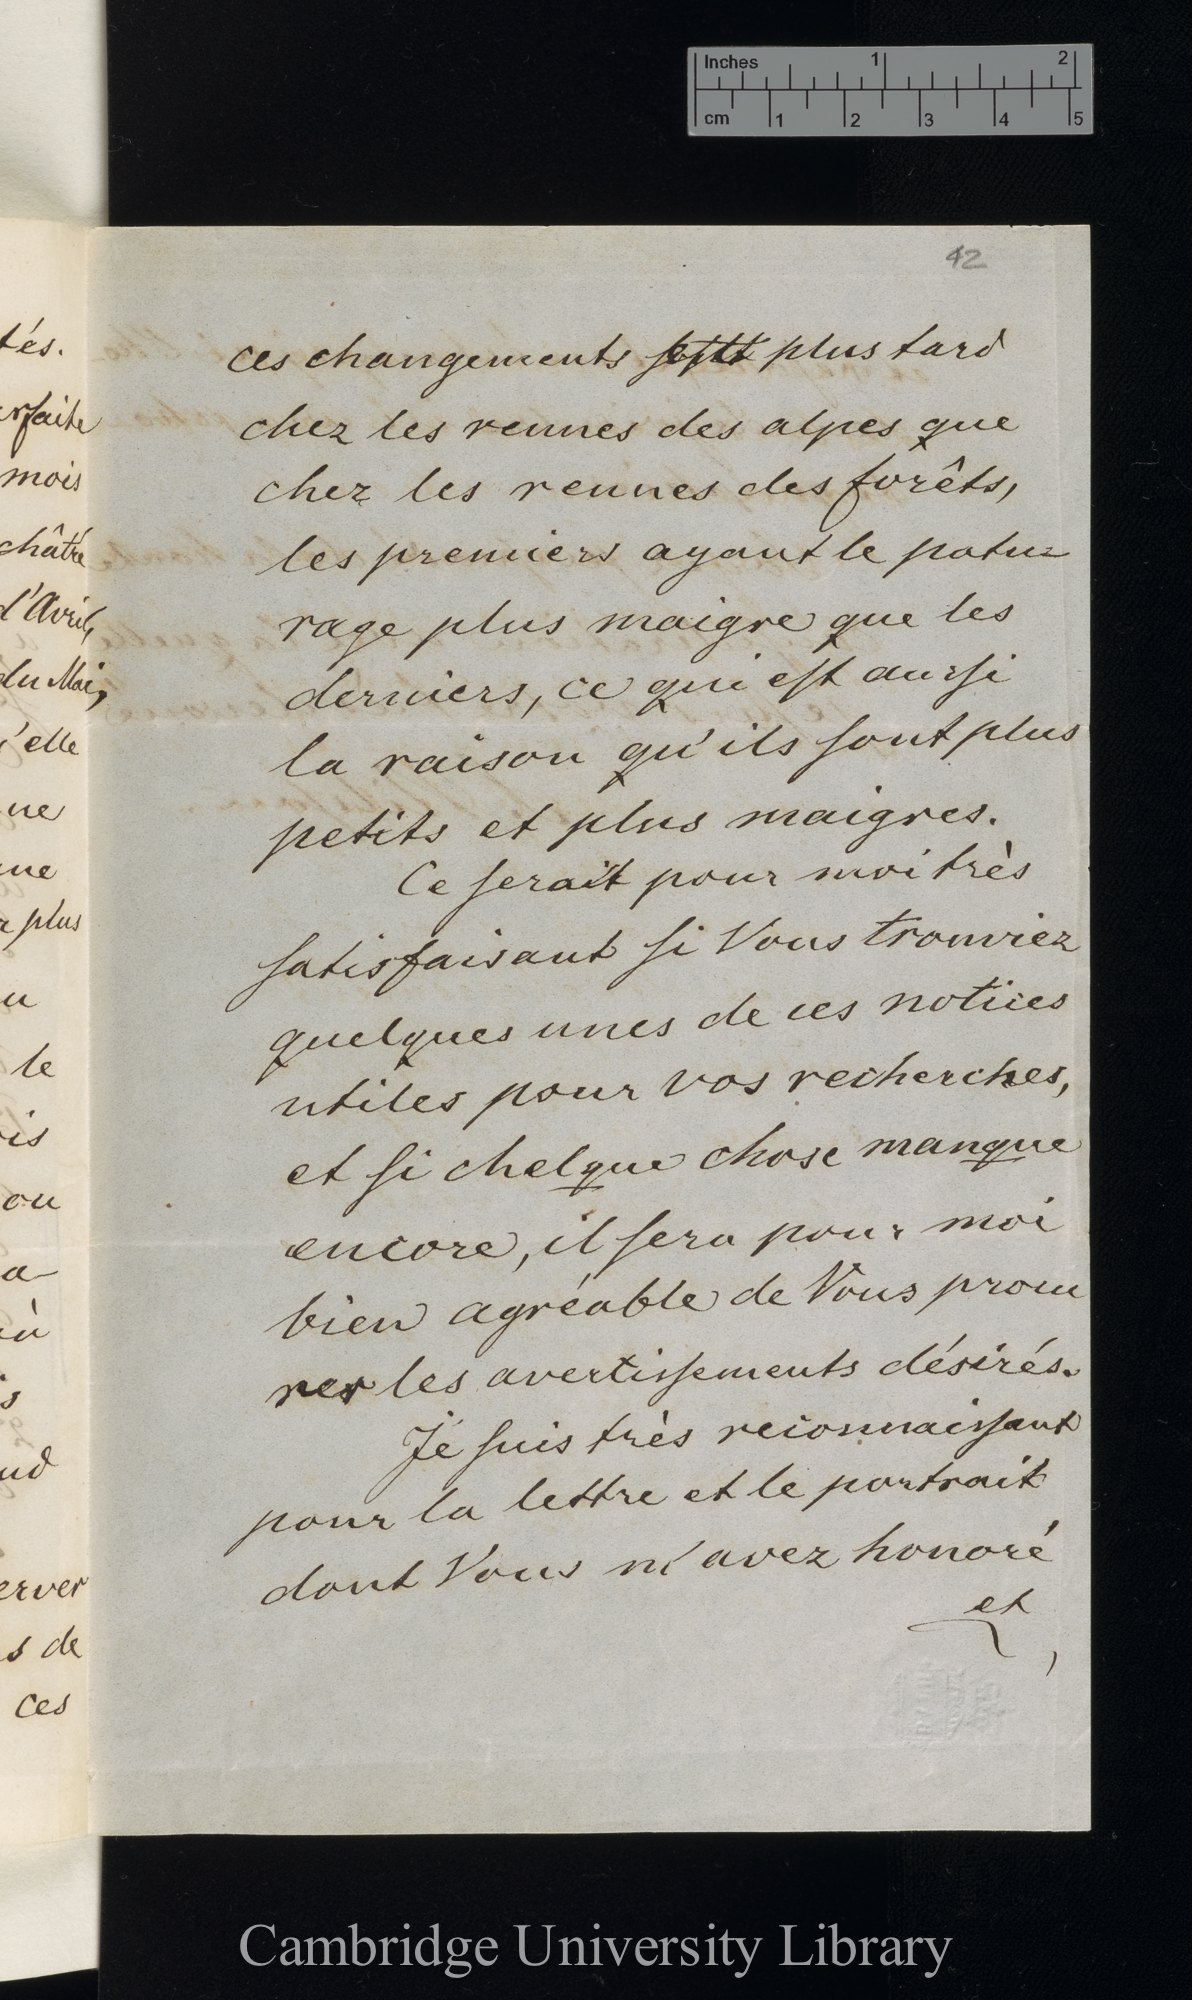 Inches 1 2
cm 1 2 3 4 5
42
tés.
rfaite
mois
châtré
d'Avril,
du Mai,
'elle
ne
me
plus
u
le
is
ou
a-
ù
s
nd
erver
s de
ces
ces changements plus tard
chez les rennes des alpes que
chez les rennes des forêts,
les premiers ayant le patu=
rage plus maigre que les
derniers, ce qui est aussi
la raison qu'ils sont plus
petits et plus maigres.
Ce serait pour moi très
satisfaisant si Vous trouviez
quelques unes de ces notices
utiles pour vos recherches,
et si chelque chose manque
encore, il sera pour moi
bien agréable de Vous procu
rer les avertissements désirés.
Je suis très reconnaissant
pour la lettre et le portrait
dont Vous m'avez honoré
et
Cambridge University Library